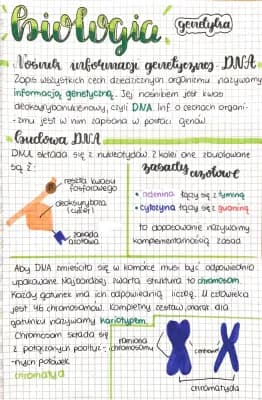 biologia
genetyka
Nośnik informacji genetycznej - DNA
Zapis wszystkich cech dziedzicznych organizmu nazywamy
informacją genetyczną. Jej nośnikiem jest kwas
deoksyrybonukleinowy, czyli DNA. Inf. o cechach organi-
-zmu jest w nim zapisana w postaci genów.
Budowa DNA
DNA składa się z nukleotydów z kolei one zbudowane
są z:
reszta kwasu
fosforowego
deoksyryboza
(cukier)
zasada
azotowa
zasady
azotowe
• adenina łączy się z tyminą
• cytozyna łączy się z guaniną
to dopasowanie nazywamy
komplementarnością zasad
Aby DNA zmieściło się w komórce musi być odpowiednio
upakowane. Najbardziej zwarta struktura to chromosom.
Każdy gatunek ma ich odpowiednią liczbę. U człowieka
jest 46 chromosomów. Kompletny zestaw, charak. dla
gatunku nazywamy kariotypem.
Chromosom składa się
z połączonych podłuż-
-nych połówek
chromatyd
ramiona
chromosomu
chromatyda